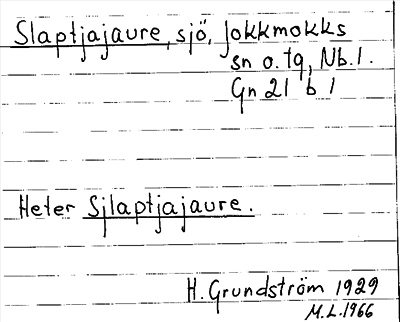 Slaptjajaure, sjö, Jokkmokks
sn o. tg, Nb. l.
Gn 21 b 1
Heter Sjlaptjajaure.
H. Grundström 1929
M.L. 1966